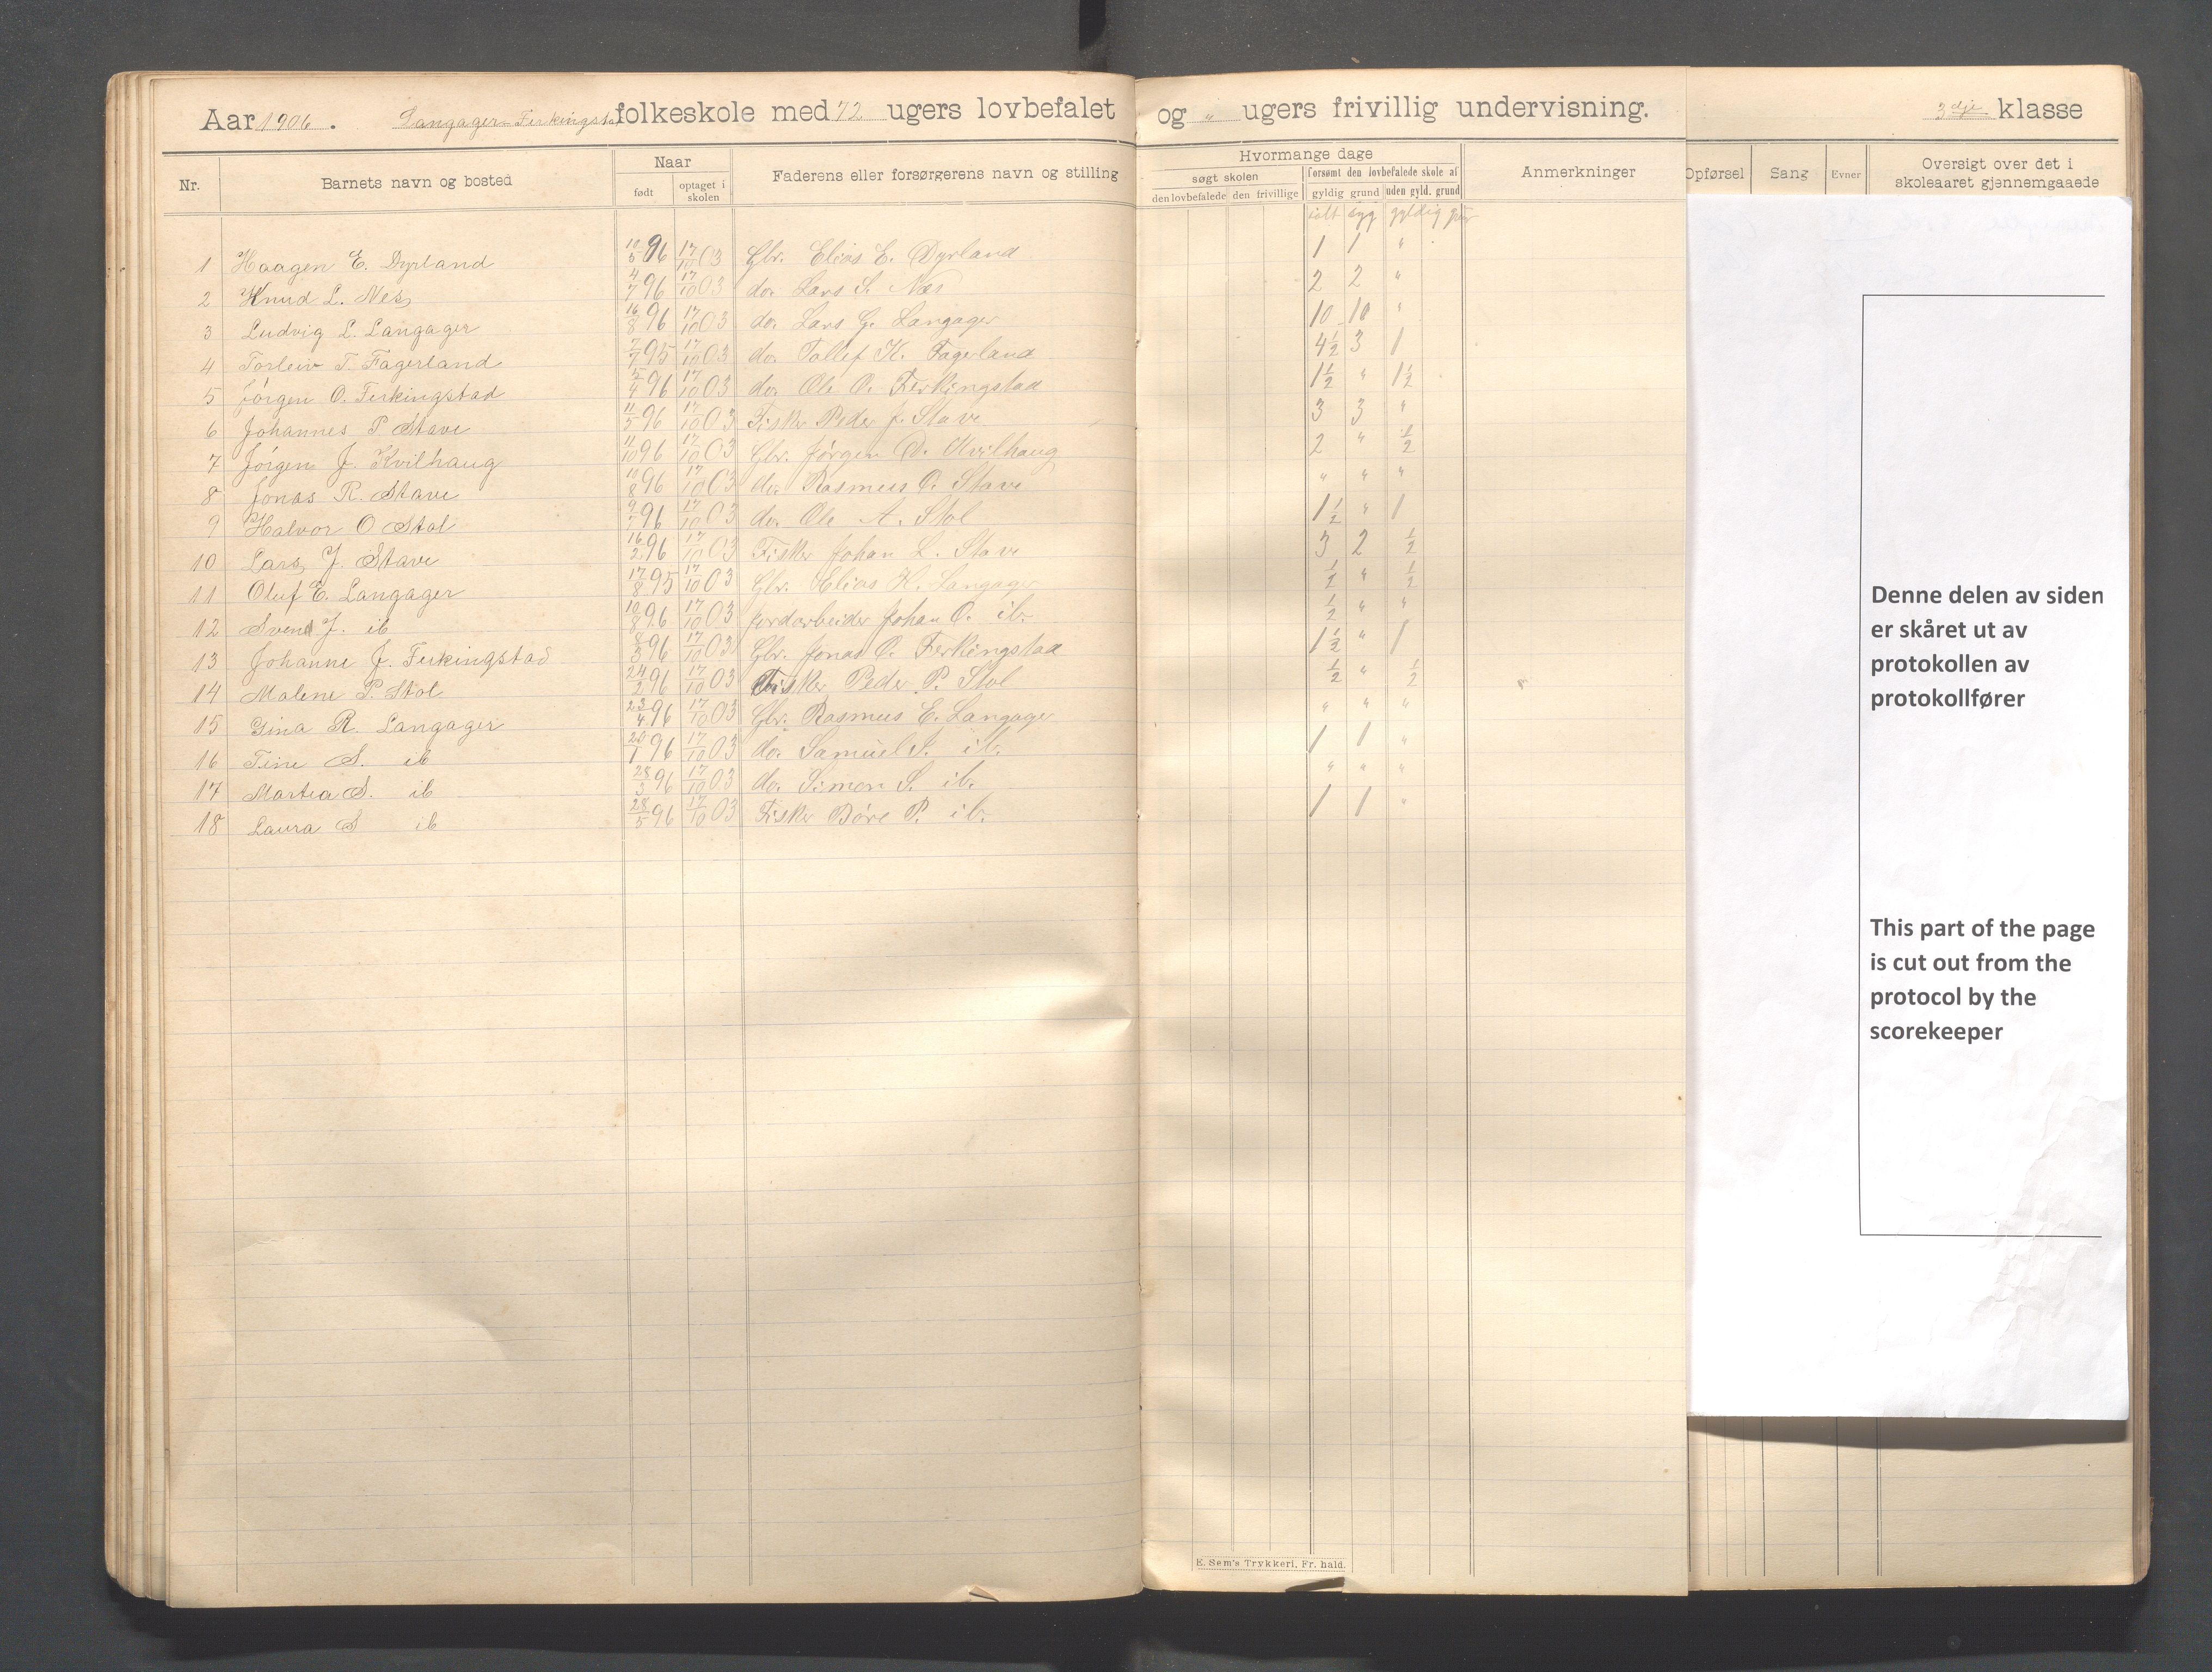 Aar 1906. Langager-Ferkingstad folkeskole med 12 ugers lovbefalet og " ugers frivillig undervisning. 3dje klasse
Nr. Barnets navn og bosted Naar født optaget i skolen Faderens eller forsørgerens navn og stilling Hvormange dage søgt skolen den lovbefalede den frivillige forsømt den lovbefalede skole af gyldig grund uden gyld. grund Anmerkninger Opførsel Sang Evner Oversigt over det i skoleaaret gjennemgaaede
ialt syg gyldig gr.
1 Haagen E. Dyrland 10/5 96 17/10 03 Gbr. Elias E. Dyrland 1 1 "
2 Knud L. Nes 4/7 96 17/10 03 do. Lars S. Næs 2 2 "
3 Ludvig L. Langager 16/8 96 17/10 03 do. Lars G. Langager 10 10 "
4 Torleiv T. Fagerland 7/7 95 17/10 03 do. Tollef K. Fagerland 4 1/2 3 1
5 Jørgen O. Ferkingstad 5/4 96 17/10 03 do. Ole O. Ferkingstad 1 1/2 " 1 1/2
6 Johannes P Stave 11/5 96 17/10 03 Fisker Peder J. Stave 3 3 "
7 Jørgen J. Kvilhaug 11/10 96 17/10 03 Gbr. Jørgen D. Kvilhaug 2 " 1/2
8 Jonas R. Stave 10/8 96 17/10 03 do. Rasmus O. Stave " " "
9 Halvor O Stol 9/7 96 17/10 03 do. Ole A. Stol 1 1/2 " 1
10 Lars J. Stave 16/2 96 17/10 03 Fisker Johan L. Stave 3 2 1/2
11 Oluf E. Langager 17/8 95 17/10 03 Gbr. Elias H. Langager 1/2 " 1/2
12 Svend J. ib 10/8 96 17/10 03 Jordarbeider Johan O. ib. 1/2 " "
13 Johanne J. Ferkingstad 8/3 96 17/10 03 Gbr. Jonas O. Ferkingstad 1 1/2 " 1
14 Malene P. Stol 24/2 96 17/10 03 Fisker Peder P. Stol 1/2 " 1/2
15 Gina R. Langager 23/4 96 17/10 03 Gbr. Rasmus E. Langager " " "
16 Tine S. ib 20/1 96 17/10 03 do. Samuel S. ib. 1 1 "
17 Martea S. ib 28/3 96 17/10 03 do. Simon S. ib. " " "
18 Laura S ib 28/5 96 17/10 03 Fisker Børe P. ib. 1 1 "
E. Sem's Trykkeri, Fr. hald.
Denne delen av siden
er skåret ut av
protokollen av
protokollfører
This part of the page
is cut out from the
protocol by the
scorekeeper